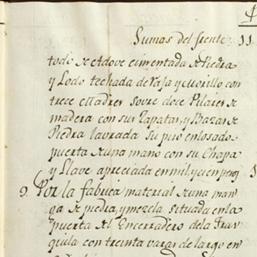 Sumas del frente 11
todo de Adove cimentada de Piedra
y Lodo techada de Vaja y Morillo con
trece Madres sovre doce Pilares de
madera con sus Zapatas, y Bazas de
Piedra lavrada su piso enlosado
puerta de una mano con su Chapa
y Llave apreciada en mil y cien pesos
9. Por la fabrica material de una man
ga de piedra y mezcla situada en la
puerta del Encerradero dela
quila con treinta varas de largo en